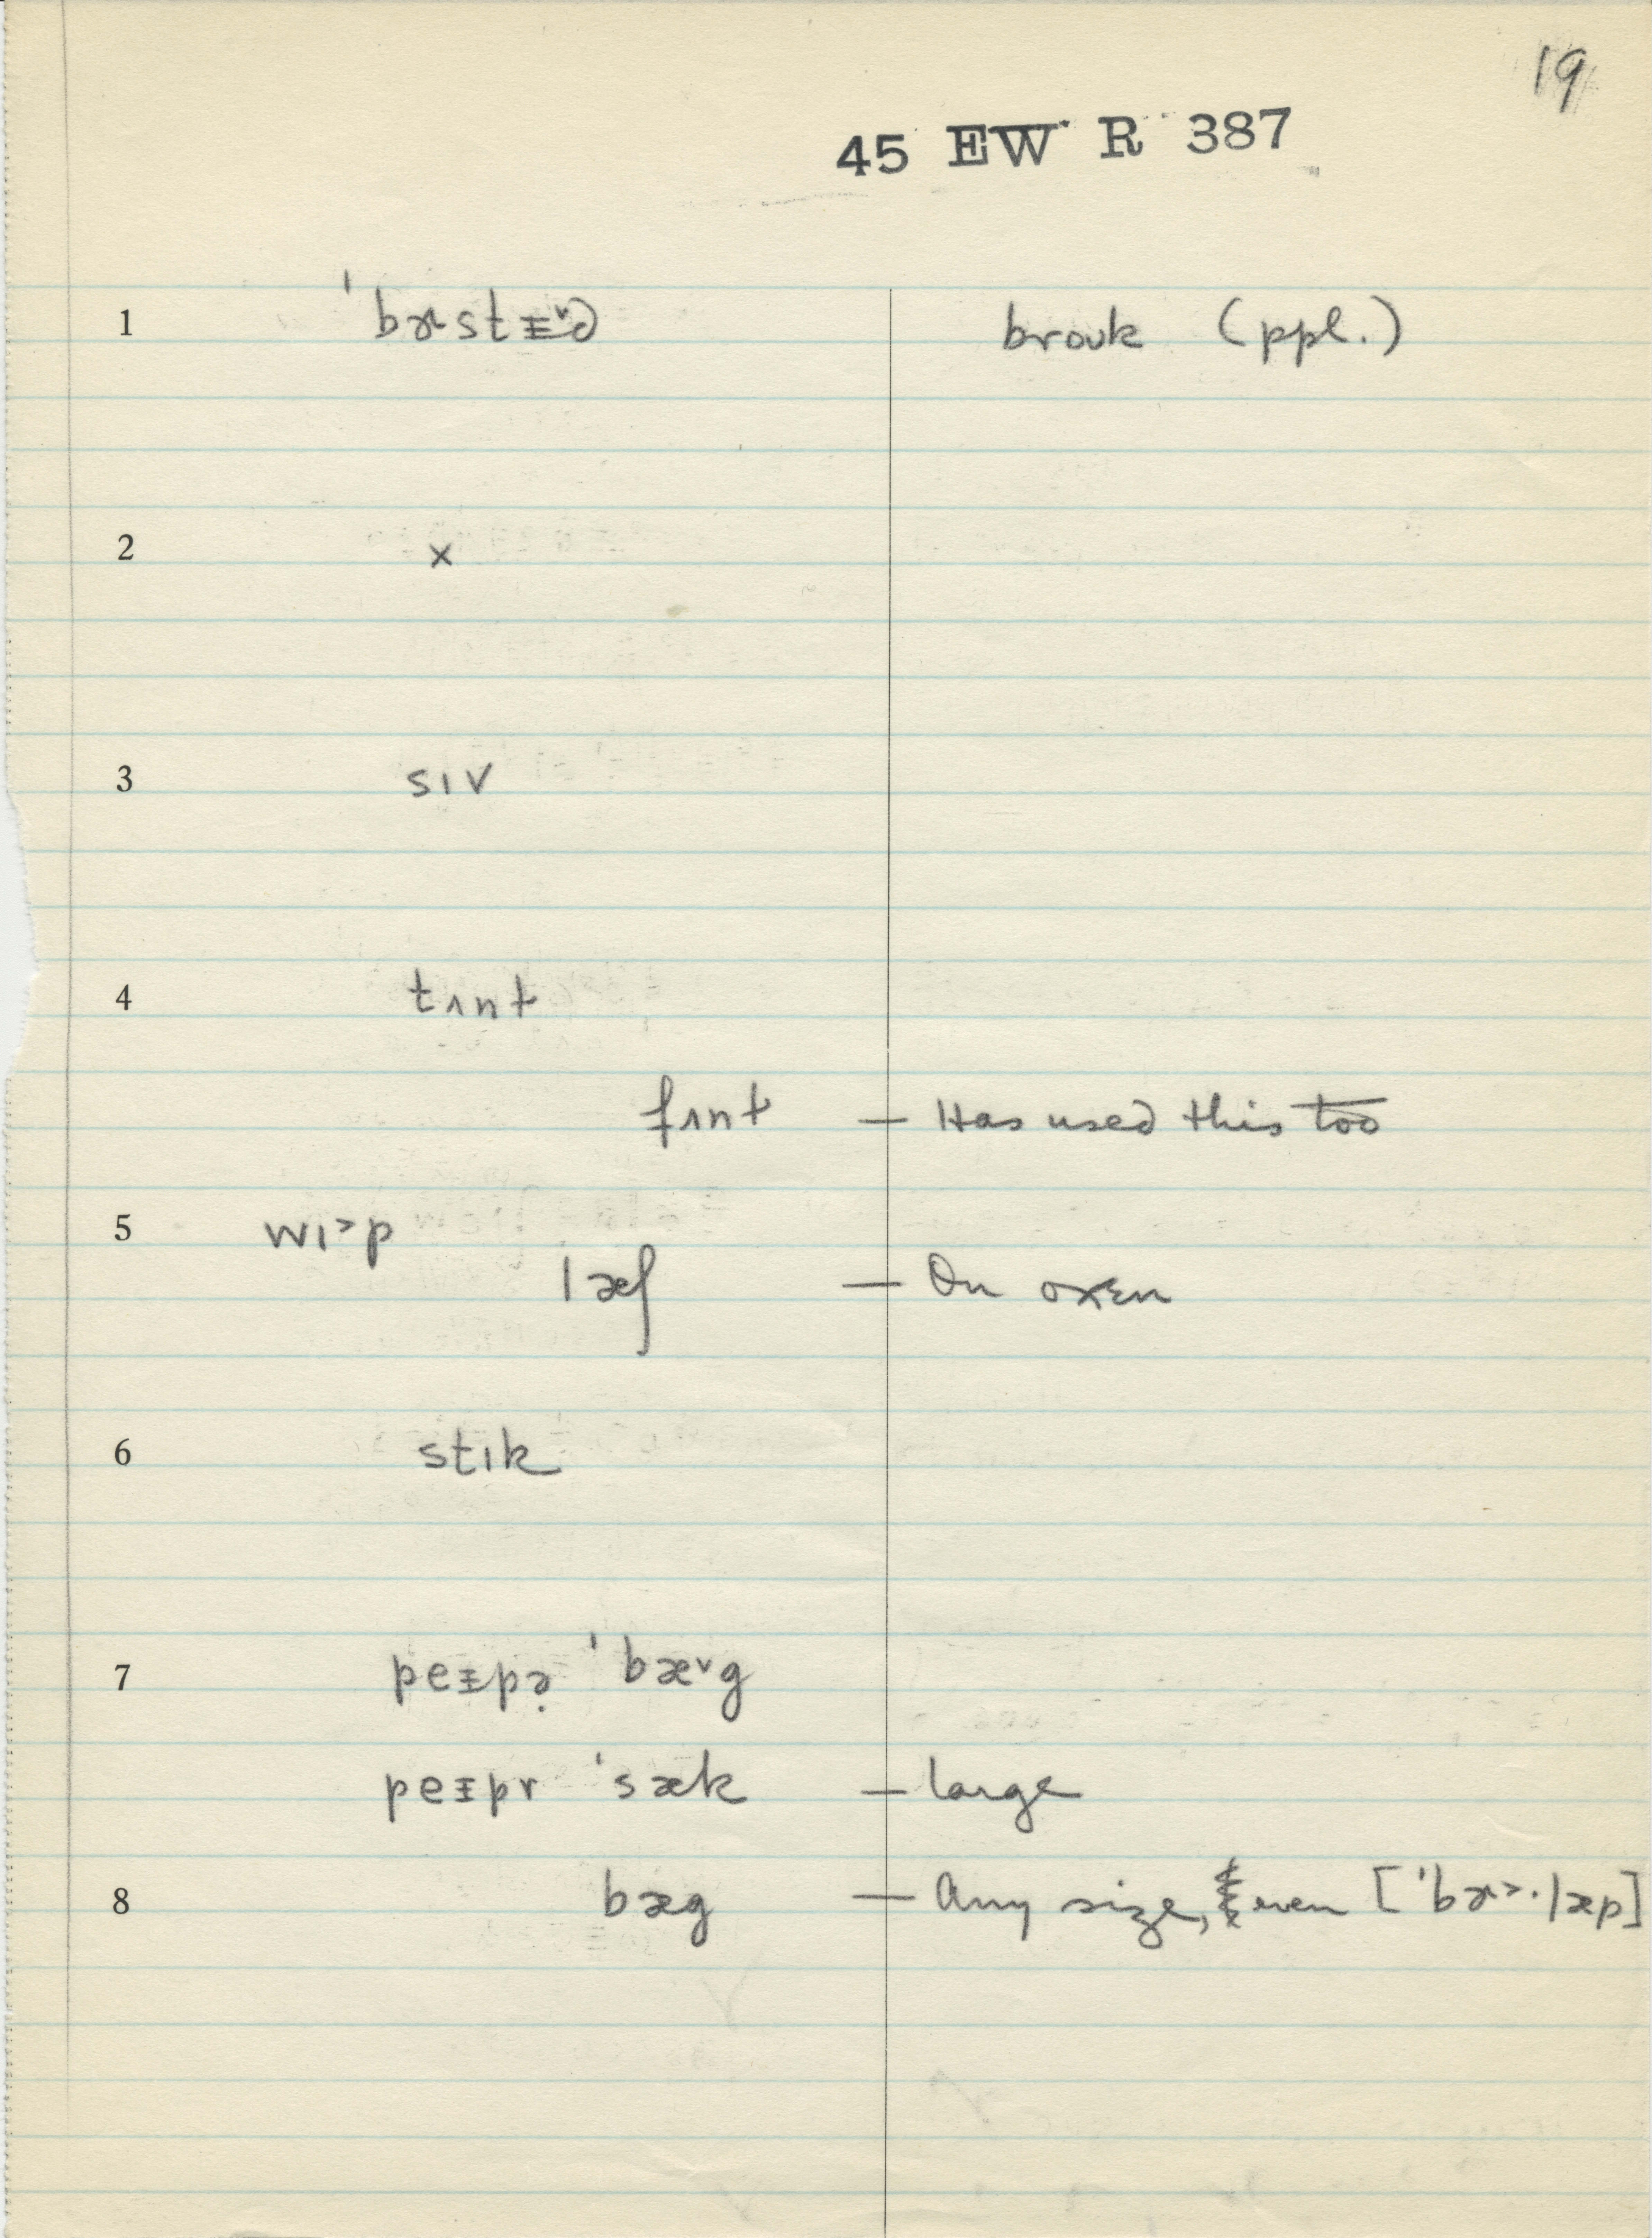 19
45 EW R 387
1 ˈbɝstᵻ˅d brouk (ppl.)
2 ×
3 sɪv
4 tʌnt
fʌnt — Has used this too
5 wɪ˃p
læʃ — On oxen
6 stɪk
7 peᵻpə̣ ˈbæ˅g
peᵻpr ˈsæk — large
8 bæg — Any size, even [ˈbɝ˃·læp]